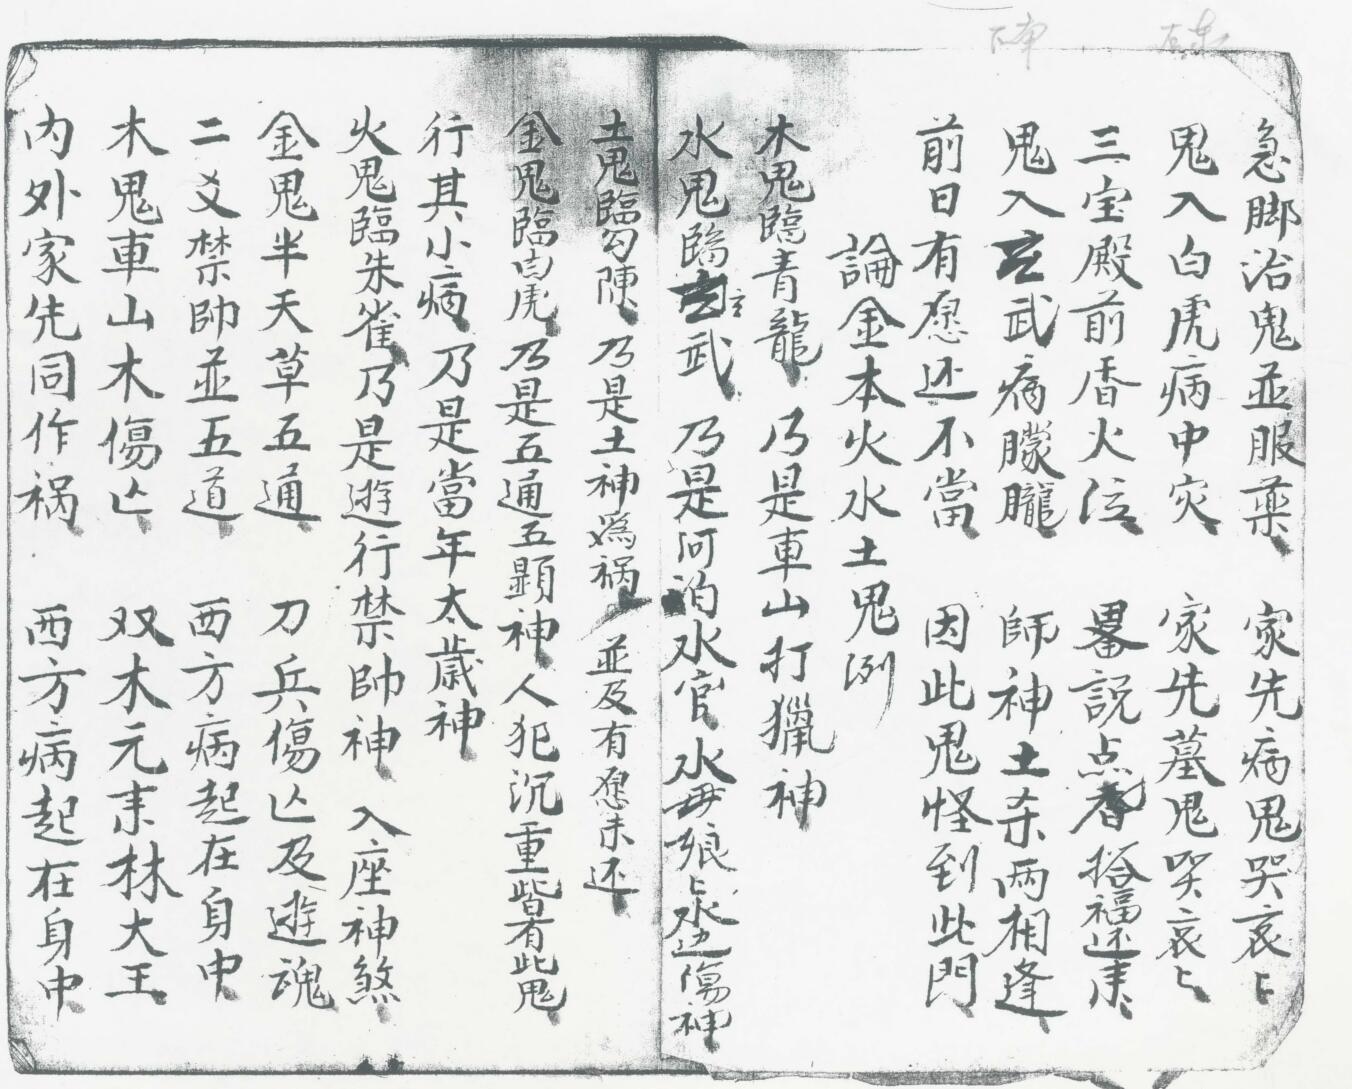 急脚治鬼並服藥 家先病鬼哭哀〻
鬼入白虎病中灾 家先墓鬼哭哀〻
三宝殿前香火位 畧説点香拾福还来
鬼入玄武病朦朧 師神土杀両相逢
前日有愿还不當 因此鬼怪到此門
論金本火水土鬼例
木鬼臨青龍 乃是車山打獵神
水鬼臨玄武 乃是河泊水官水毋娘〻水边傷神
土鬼臨勾陳 乃是土神為禍 並及有愿未还
金鬼臨白虎 乃是五通五顯神人犯沉重皆有此鬼
行其小病 乃是當年太歲神
火鬼臨朱雀 乃是遊行禁帥神 入座神煞
金鬼半天草五通 刀兵傷亡及遊魂
二爻禁帥並五道 西方病起在身中
木鬼車山木傷亡 双木元来林大王
内外家先同作禍 西方病起在身中